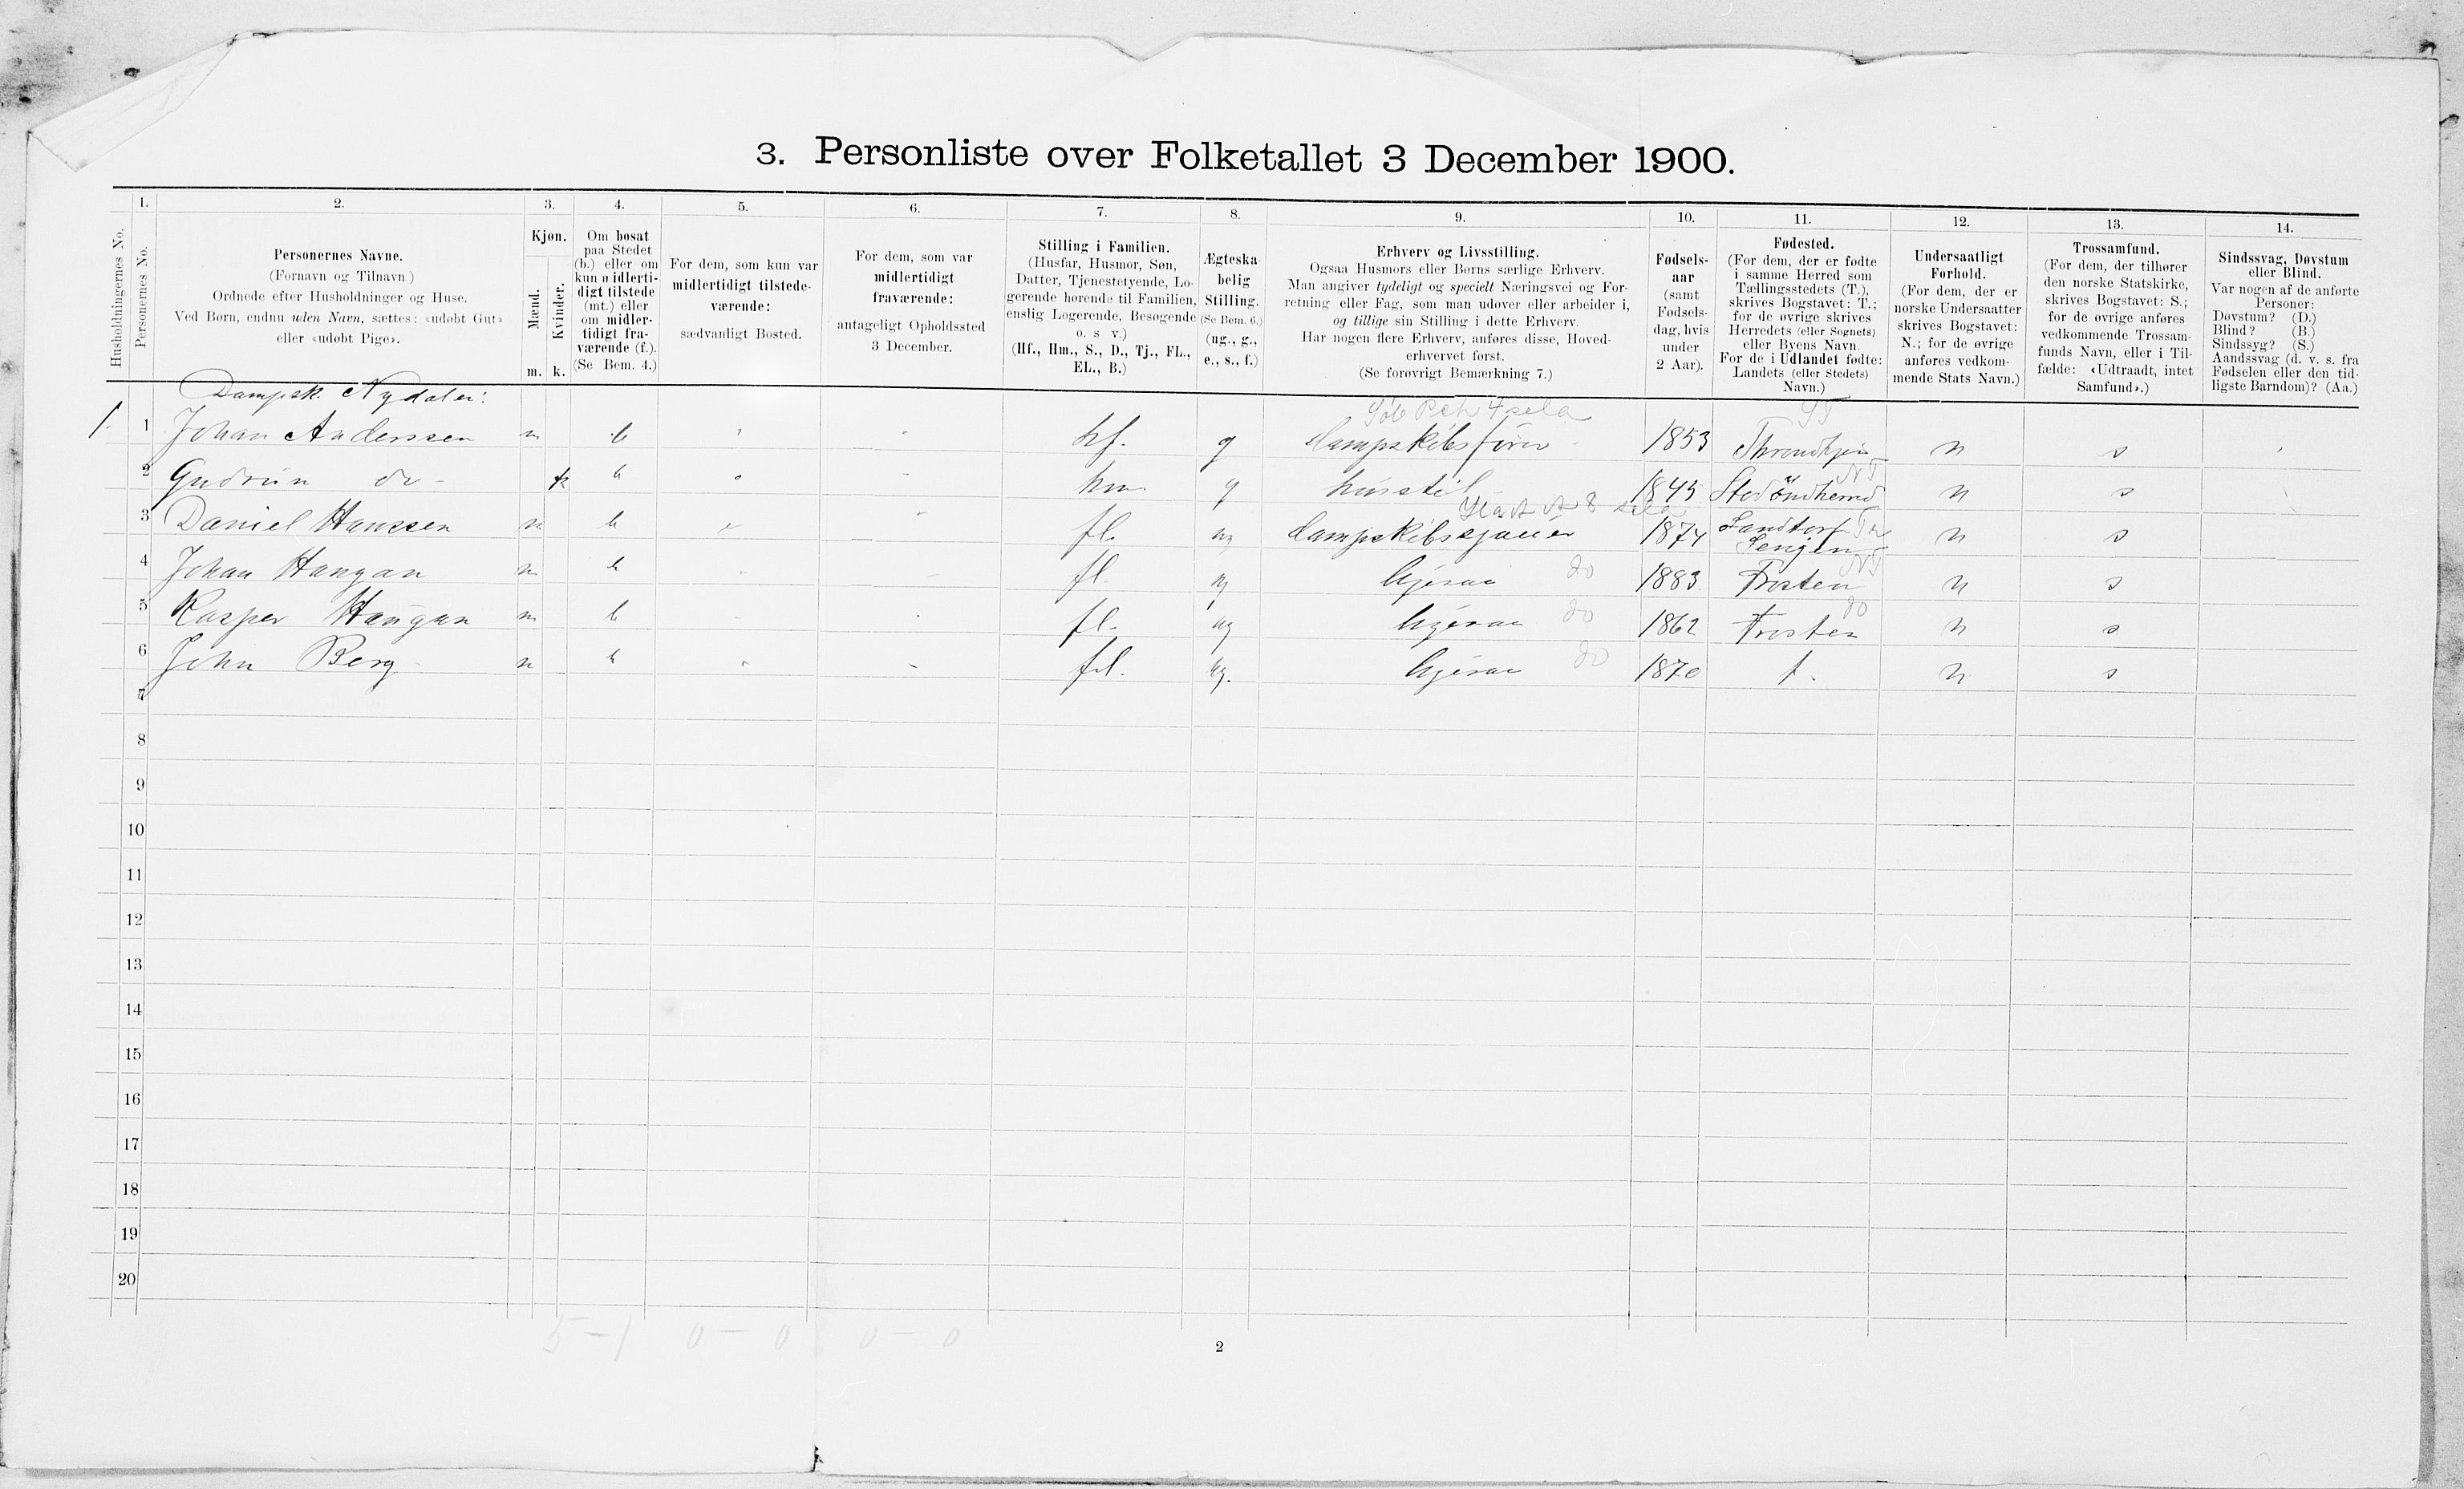 3. Personliste over Folketallet 3 December 1900.
Husholdningernes No.
1.
Personernes No.
2.
Personernes Navne.
(Fornavn og Tilnavn.)
Ordnede efter Husholdninger og Huse.
Ved Børn, endnu uden Navn, sættes: «udøbt Gut»
eller «udøbt Pige».
3.
Kjøn.
Mænd.
Kvinder.
m. k.
4.
Om bosat
paa Stedet
(b.) eller om
kun midlerti-
digt tilstede
(mt.) eller
om midler-
tidigt fra-
værende (f.).
(Se Bem. 4.)
5.
For dem, som kun var
midlertidigt tilstede-
værende:
sædvanligt Bosted.
6.
For dem, som var
midlertidigt
fraværende:
antageligt Opholdssted
3 December.
7.
Stilling i Familien.
(Husfar, Husmor, Søn,
Datter, Tjenestetyende, Lo-
gerende hørende til Familien,
enslig Logerende, Besøgende
o. s v.)
(Hf., Hm., S., D., Tj., FL.,
EL., B.)
8.
Ægteska-
belig
Stilling.
(Se Bem. 6.)
(ug., g.,
e., s., f.)
9.
Erhverv og Livsstilling.
Ogsaa Husmors eller Børns særlige Erhverv.
Man angiver tydeligt og specielt Næringsvei og For-
retning eller Fag, som man udøver eller arbeider i,
og tillige sin Stilling i dette Erhverv.
Har nogen flere Erhverv, anføres disse, Hoved-
erhvervet først.
(Se forøvrigt Bemærkning 7.)
10.
Fødsels-
aar
(samt
Fødsels-
dag, hvis
under
2 Aar).
11.
Fødested.
(For dem, der er fødte
i samme Herred som
Tællingsstedets (T.),
skrives Bogstavet: T.;
for de øvrige skrives
Herredets (eller Sognets)
eller Byens Navn.
For de i Udlandet fødte:
Landets (eller Stedets)
Navn.)
12.
Undersaatligt
Forhold.
(For dem, der er
norske Undersaatter
skrives Bogstavet:
N.; for de øvrige
anføres vedkom-
mende Stats Navn.)
13.
Trossamfund.
(For dem, der tilhører
den norske Statskirke,
skrives Bogstavet: S.;
for de øvrige anføres
vedkommende Trossam-
funds Navn, eller i Til-
fælde: «Udtraadt, intet
Samfund».)
14.
Sindssvag, Døvstum
eller Blind.
Var nogen af de anførte
Personer:
Døvstum? (D.)
Blind? (B.)
Sindssyg? (S.)
Aandssvag (d. v. s. fra
Fødselen eller den tid-
ligste Barndom)? (Aa.)
Dampsk. Nydalen:
1. 1 Johan Anderssen m b hf. g dampskibsfører 1853 Throndhjem n s
2 Gudrun do - k b hm g husstel 1845 n s
3 Daniel Hanssen m b fl. ug dampskibssjauer 1874 Sandtorf Senjen n s
4 Johan Haugan m b fl. ug ligesaa do 1883 Frosten NT n s
5 Kasper Haugan m b fl. ug ligesaa do 1862 Frosten do n s
6 John Berg m b fl. ug. ligesaa do 1870 t. n s
7
8
9
10
11
12
13
14
15
16
17
18
19
20
5-1 0-0 0-0
2